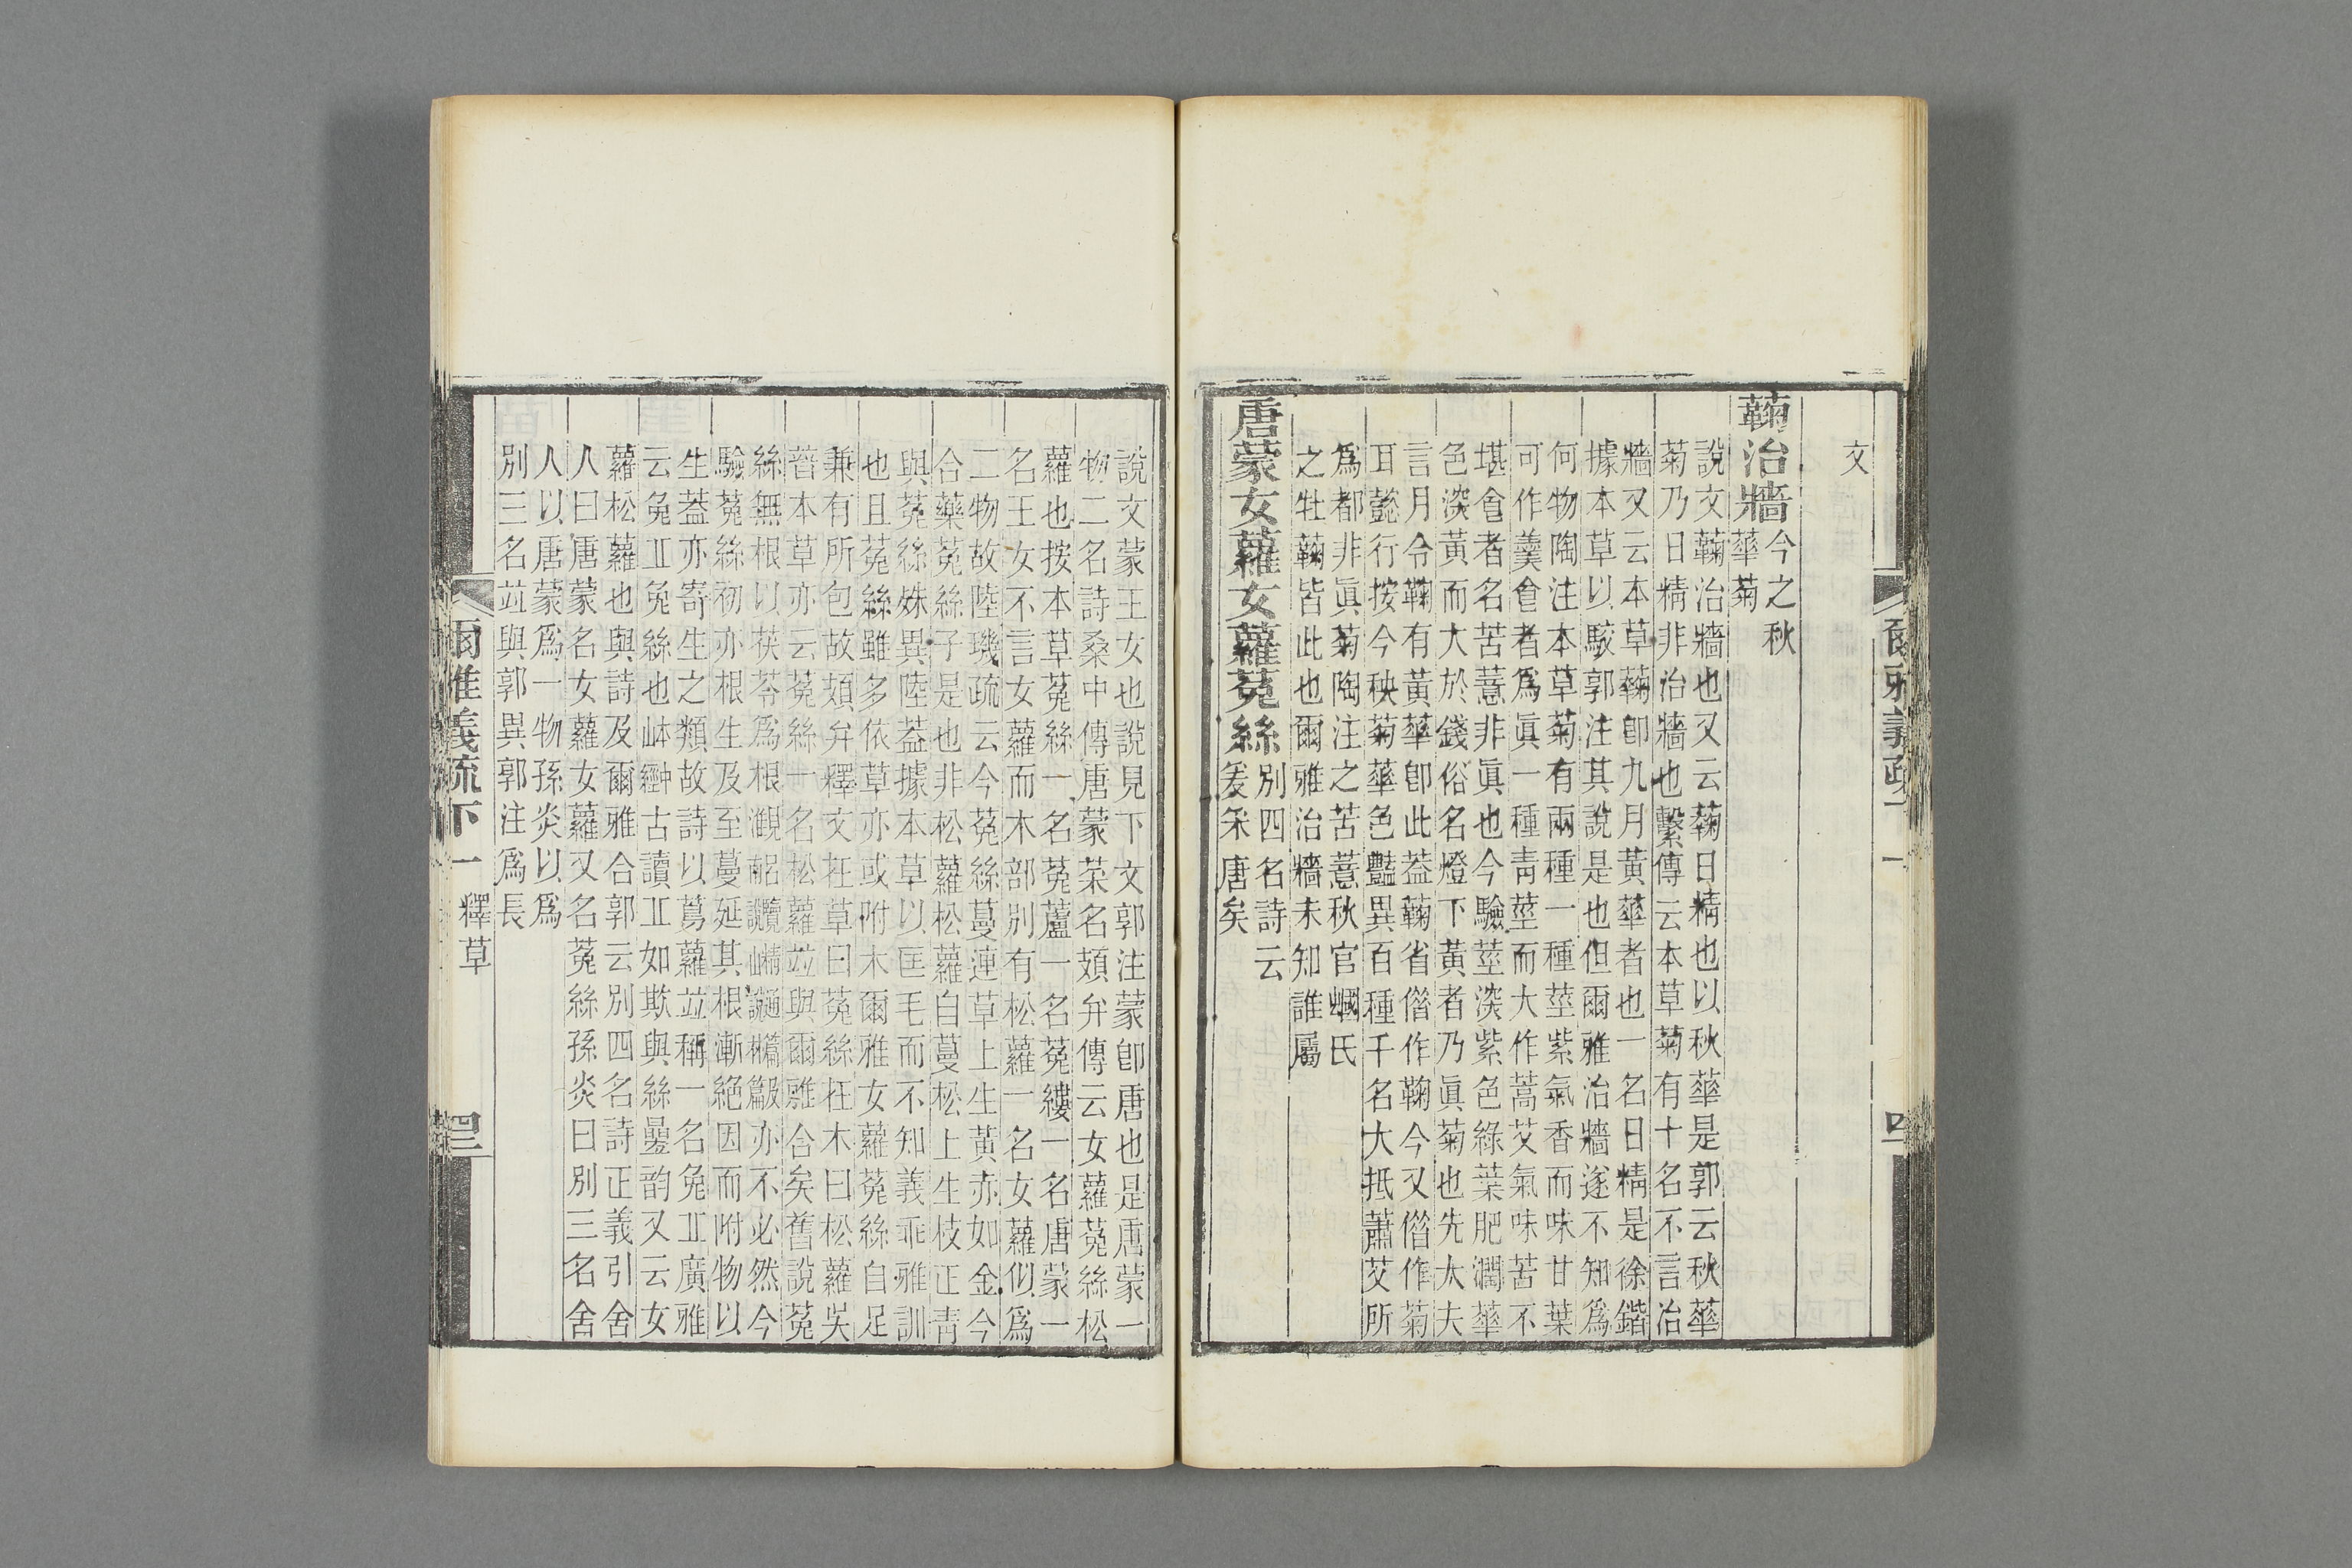 文
蘜治牆今之秋
華菊
說文蘜治牆也又云蘜日精也以秋華是郭云秋華
菊乃日精非治牆也繫傳云本草菊有十名不言治
牆又云本草蘜卽九月黃華者也一名日精是徐鍇
據本草以駮郭注其說是也但爾雅治牆遂不知爲
何物陶注本草菊有兩種一種莖紫氣香而味甘葉
可作羹食者爲眞一種靑莖而大作蒿艾氣味苦不
堪食者名苦薏非眞也今驗莖淡紫色綠葉肥潤華
色深黃而大於錢俗名燈下黃者乃眞菊也先大夫
言月令鞠有黃華卽此葢蘜省偕作鞠今又偕作菊
耳懿行按今秧菊華色豔異百種千名大抵蕭艾所
爲都非眞菊陶注之苦薏秋官蟈氏
之牡蘜皆此也爾雅治牆未知誰屬
唐蒙女蘿女蘿菟絲別四名詩云
爰采唐矣
說文蒙王女也說見下文郭注蒙卽唐也是唐蒙一
物二名詩桑中傳唐蒙菜名頍弁傳云女蘿菟絲松
蘿也按本草菟絲一名菟蘆一名菟縷一名唐蒙一
名王女不言女蘿而木部別有松蘿一名女蘿似爲
二物故陸璣疏云今菟絲蔓連草上生黃赤如金今
合藥菟絲子是也非松蘿松蘿自蔓松上生枝正靑
與菟絲殊異陸葢據本草以匡毛而不知義乖雅訓
也且菟絲雖多依草亦或附木爾雅女蘿菟絲自足
兼有所包故頍弁釋文在草曰菟絲在木曰松蘿吳
普本草亦云菟絲一名松蘿竝與爾雅合矣舊說菟
絲無根以茯苓爲根亦不必然今
驗菟絲初亦根生及至蔓延其根漸絕因而附物以
生葢亦寄生之類故詩以蔦蘿竝稱一名兔丘廣雅
云兔丘兔絲也古讀丘如欺與絲疊韵又云女
蘿松蘿也與詩及爾雅合郭云別四名詩正義引舍
人曰唐蒙名女蘿女蘿又名菟絲孫炎曰別三名舍
人以唐蒙爲一物孫炎以爲
別三名竝與郭異郭注爲長
爾雅義疏下一　釋草